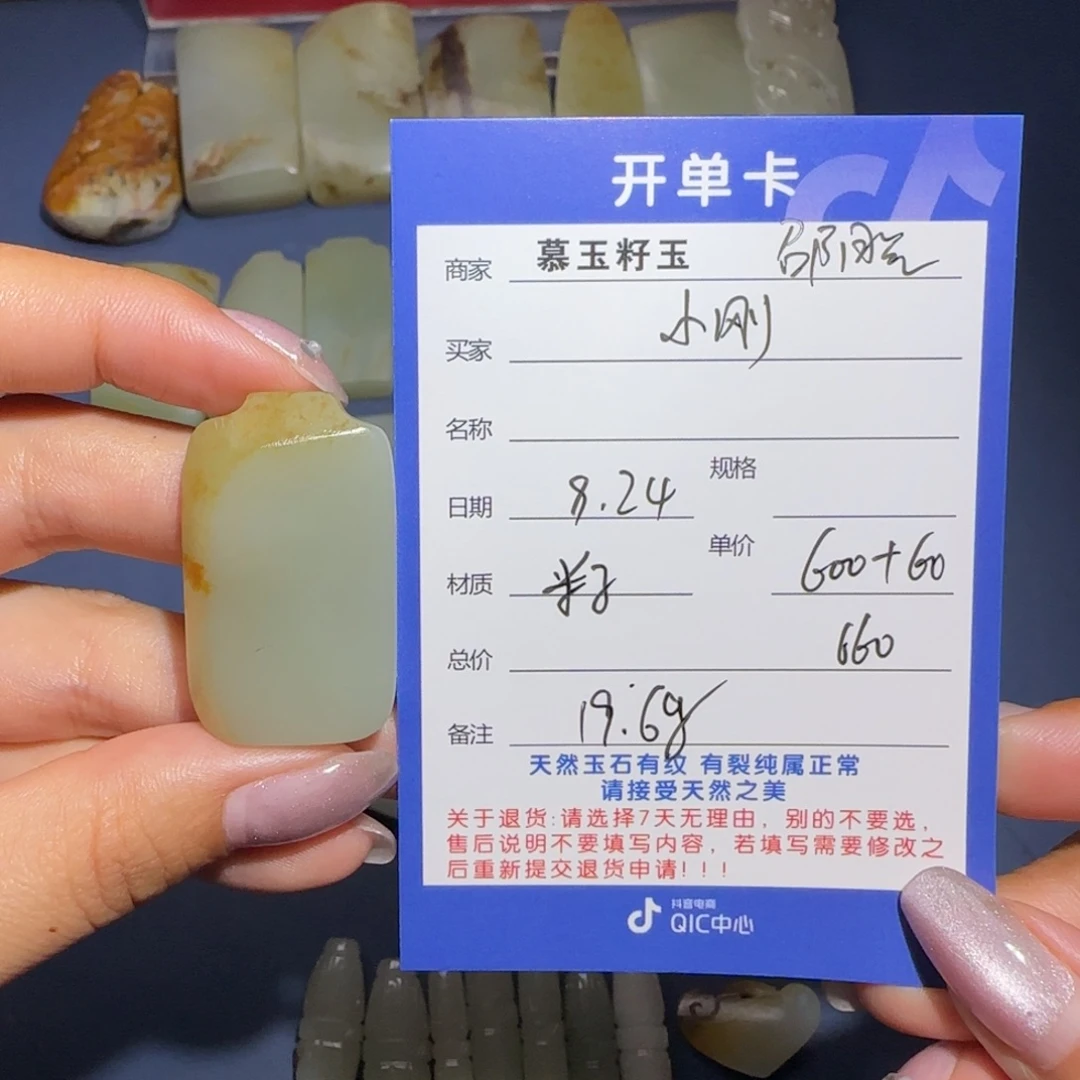 开单卡
商家 慕玉籽玉
买家 小刚
名称
规格
日期 8.24
单价 600+60
材质 籽
总价 660
备注 19.6g
天然玉石有纹 有裂纯属正常
请接受天然之美
关于退货:请选择7天无理由，别的不要选，
售后说明不要填写内容，若填写需要修改之
后重新提交退货申请!!!
抖音电商
QIC中心